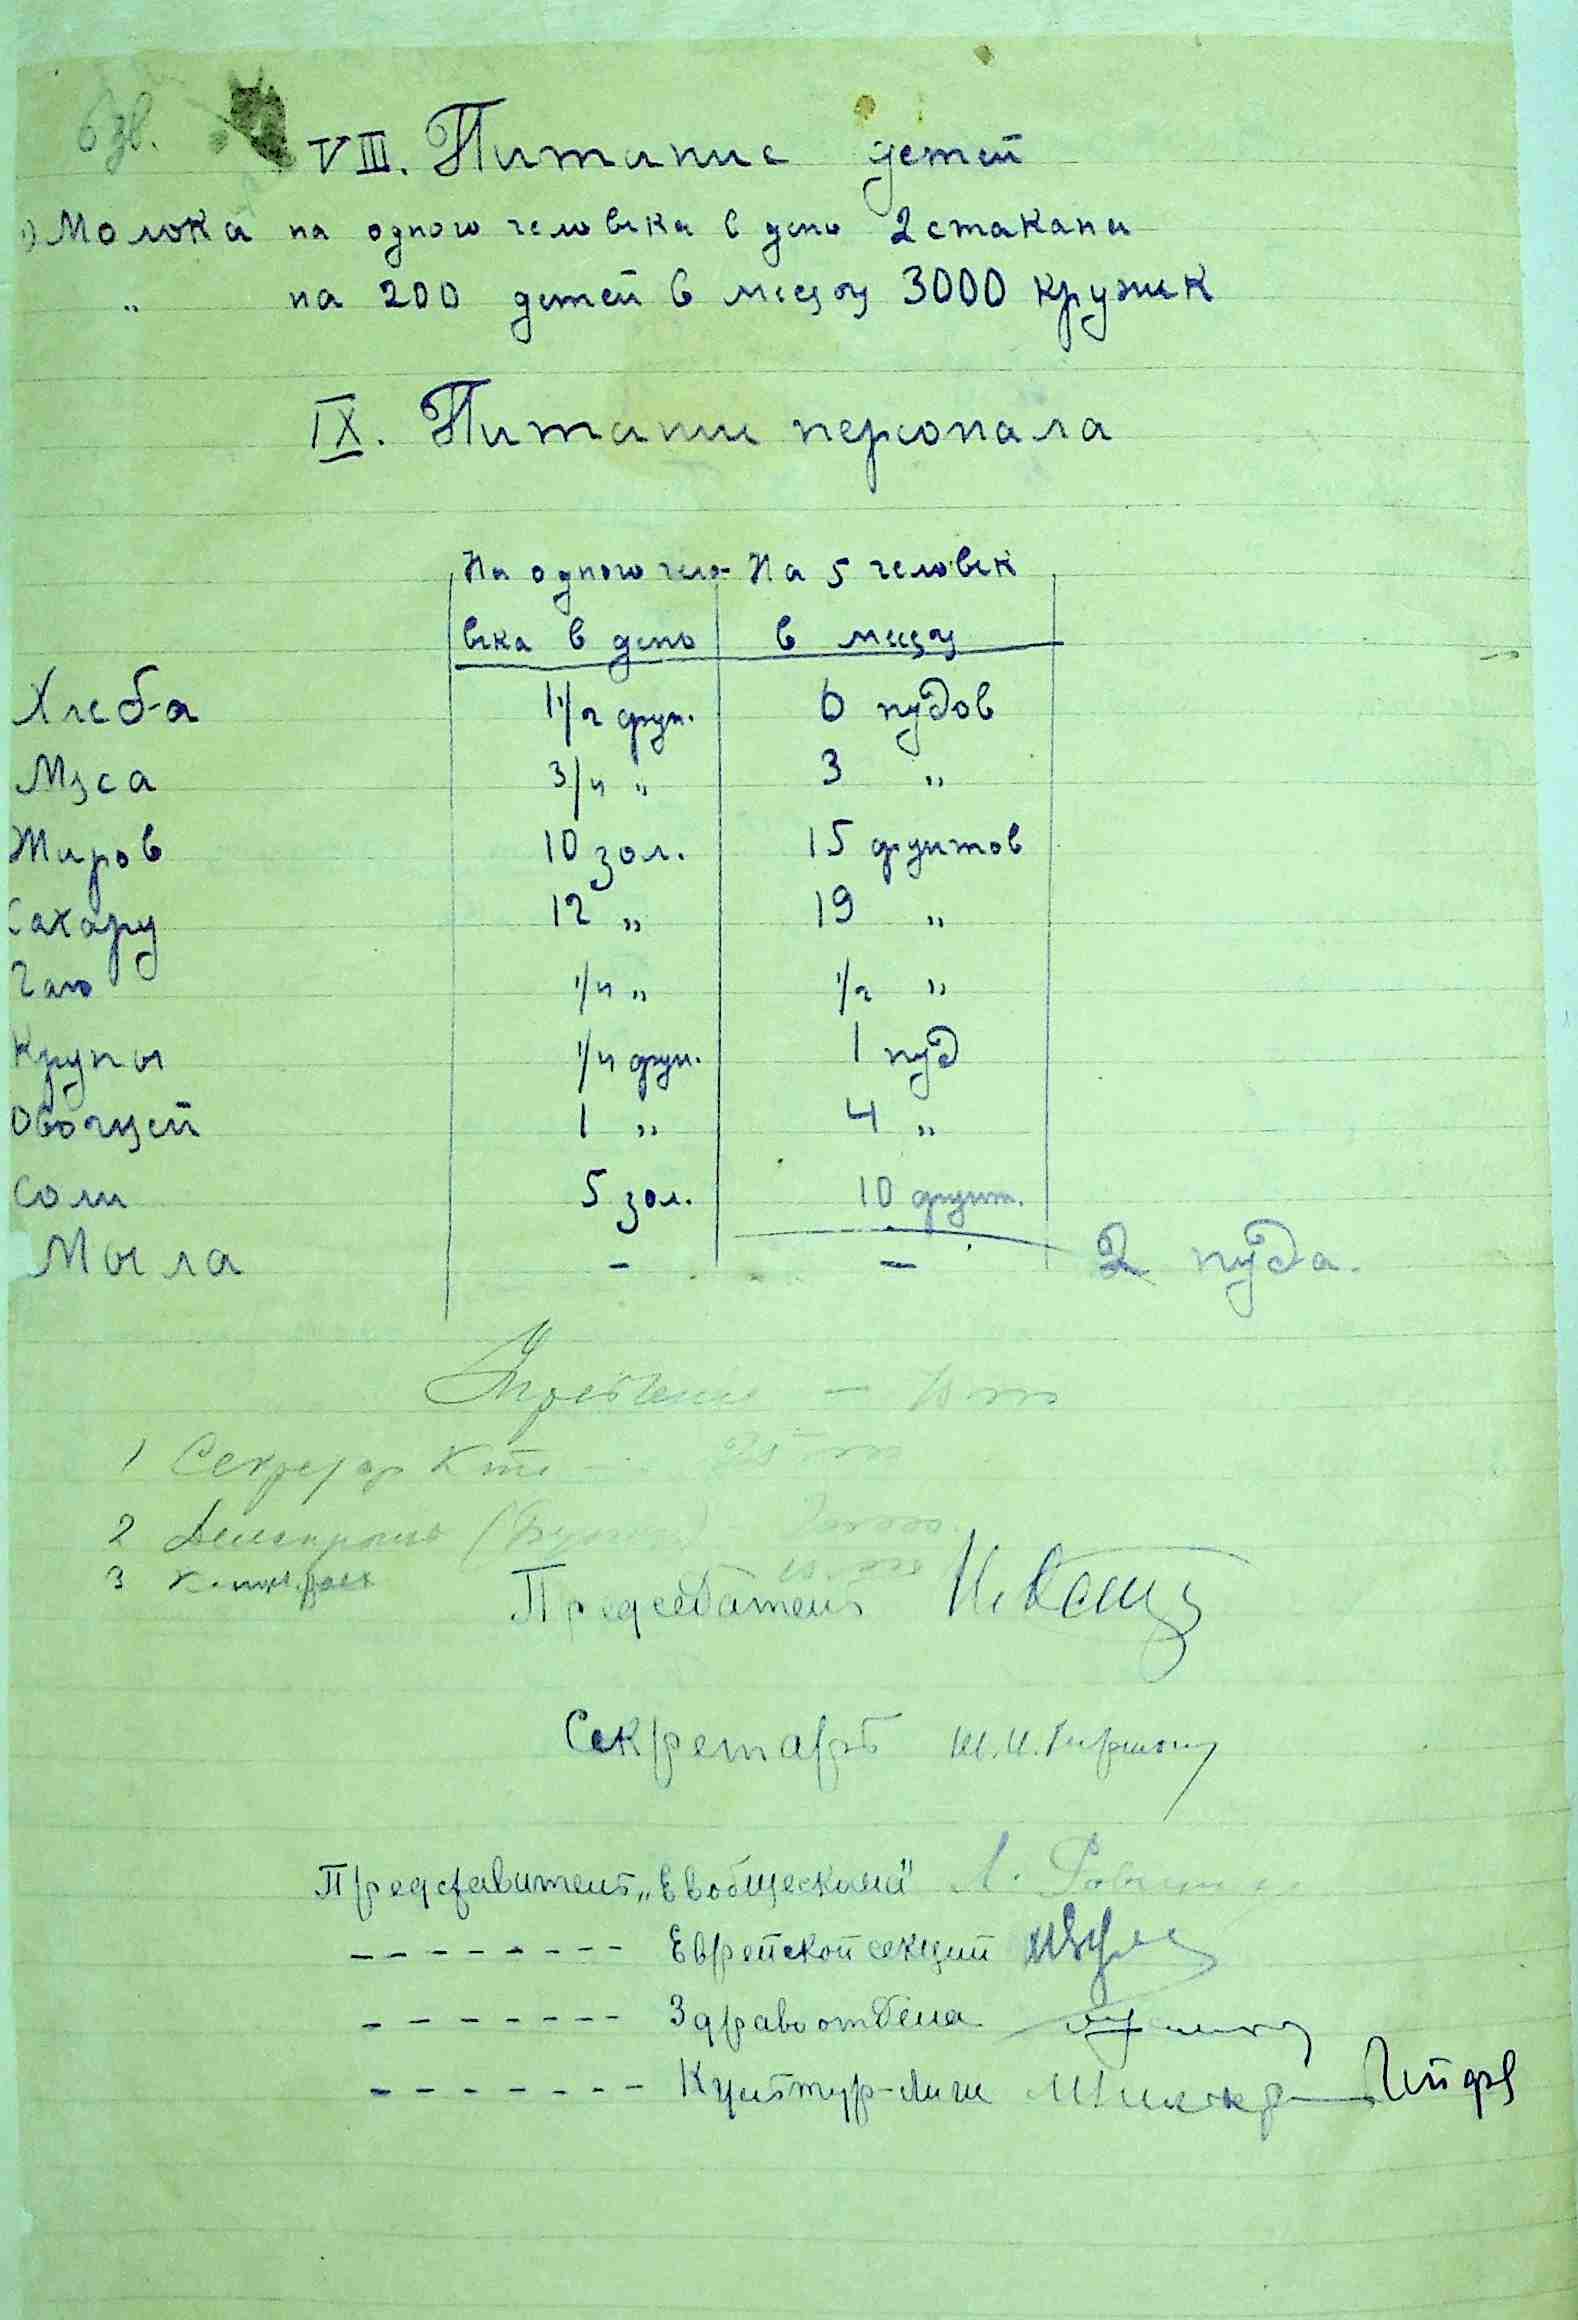 6 зв.
VIII. Питание детей
1) Молока на одного человека в день 2 стакана
„ на 200 детей в месяц 3000 кружек
IX. Питание персонала
На одного чело- На 5 человек
века в день в месяц
Хлеба 1 1/2 фун. 6 пудов
Мяса 3/4 „ 3 „
Жиров 10 зол. 15 фунтов
Сахару 12 „ 19 „
Чаю 1/4 „ 1/2 „
Крупы 1/4 фун. 1 пуд
Овощей 1 „ 4 „
Соли 5 зол. 10 фунт.
Мыла - - 2 пуда.
1 Секретар
2
3
Председатель
Секретарь Ш.И.
Представитель „Евобщескома"
- - - - - - - - Еврейской секции
- - - - - - - Здравотдела
- - - - - - - Культур-Лиги